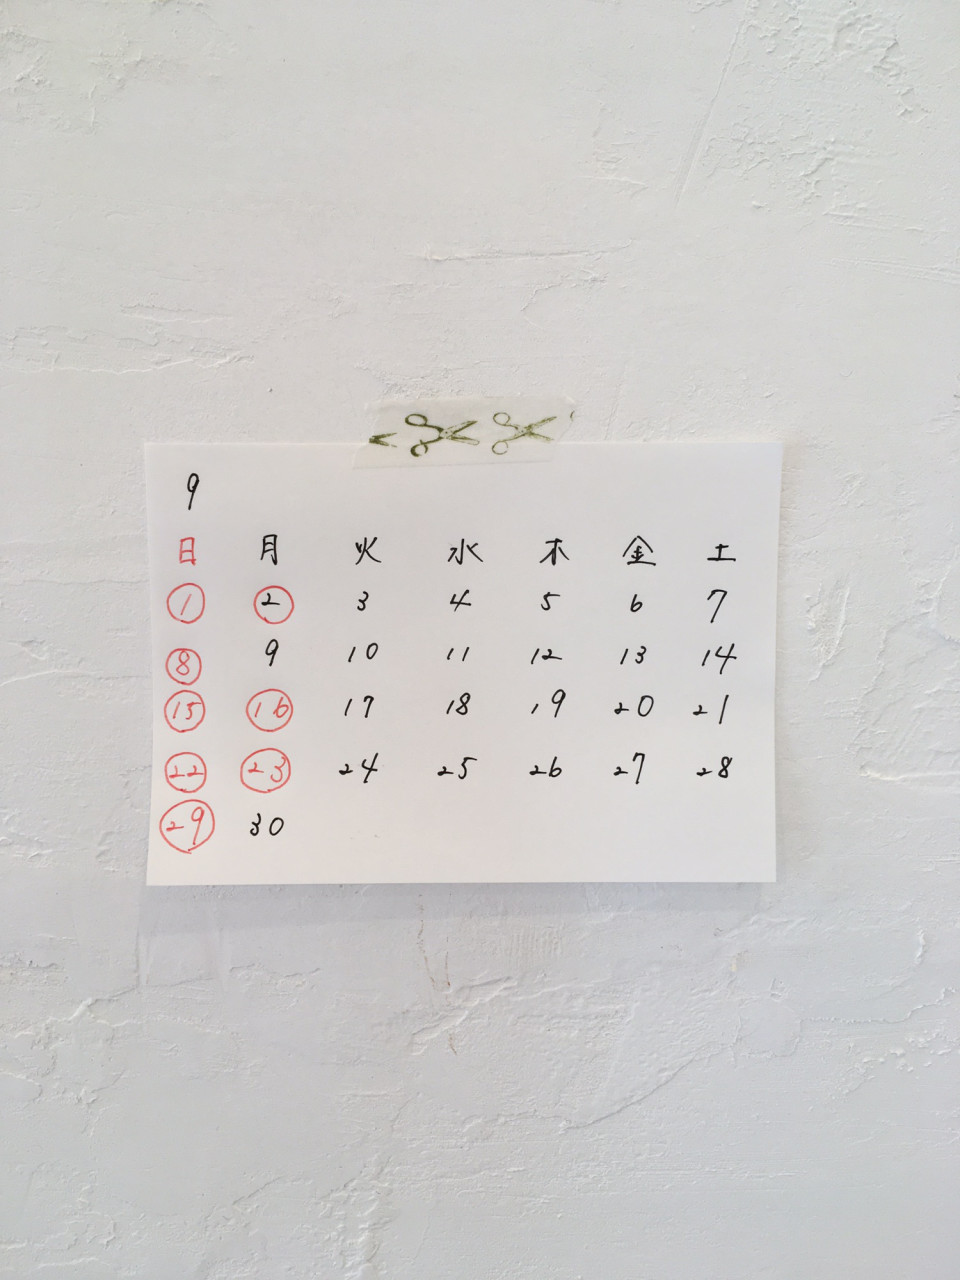 9
日 月 火 水 木 金 土
1 2 3 4 5 6 7
8 9 10 11 12 13 14
15 16 17 18 19 20 21
22 23 24 25 26 27 28
29 30